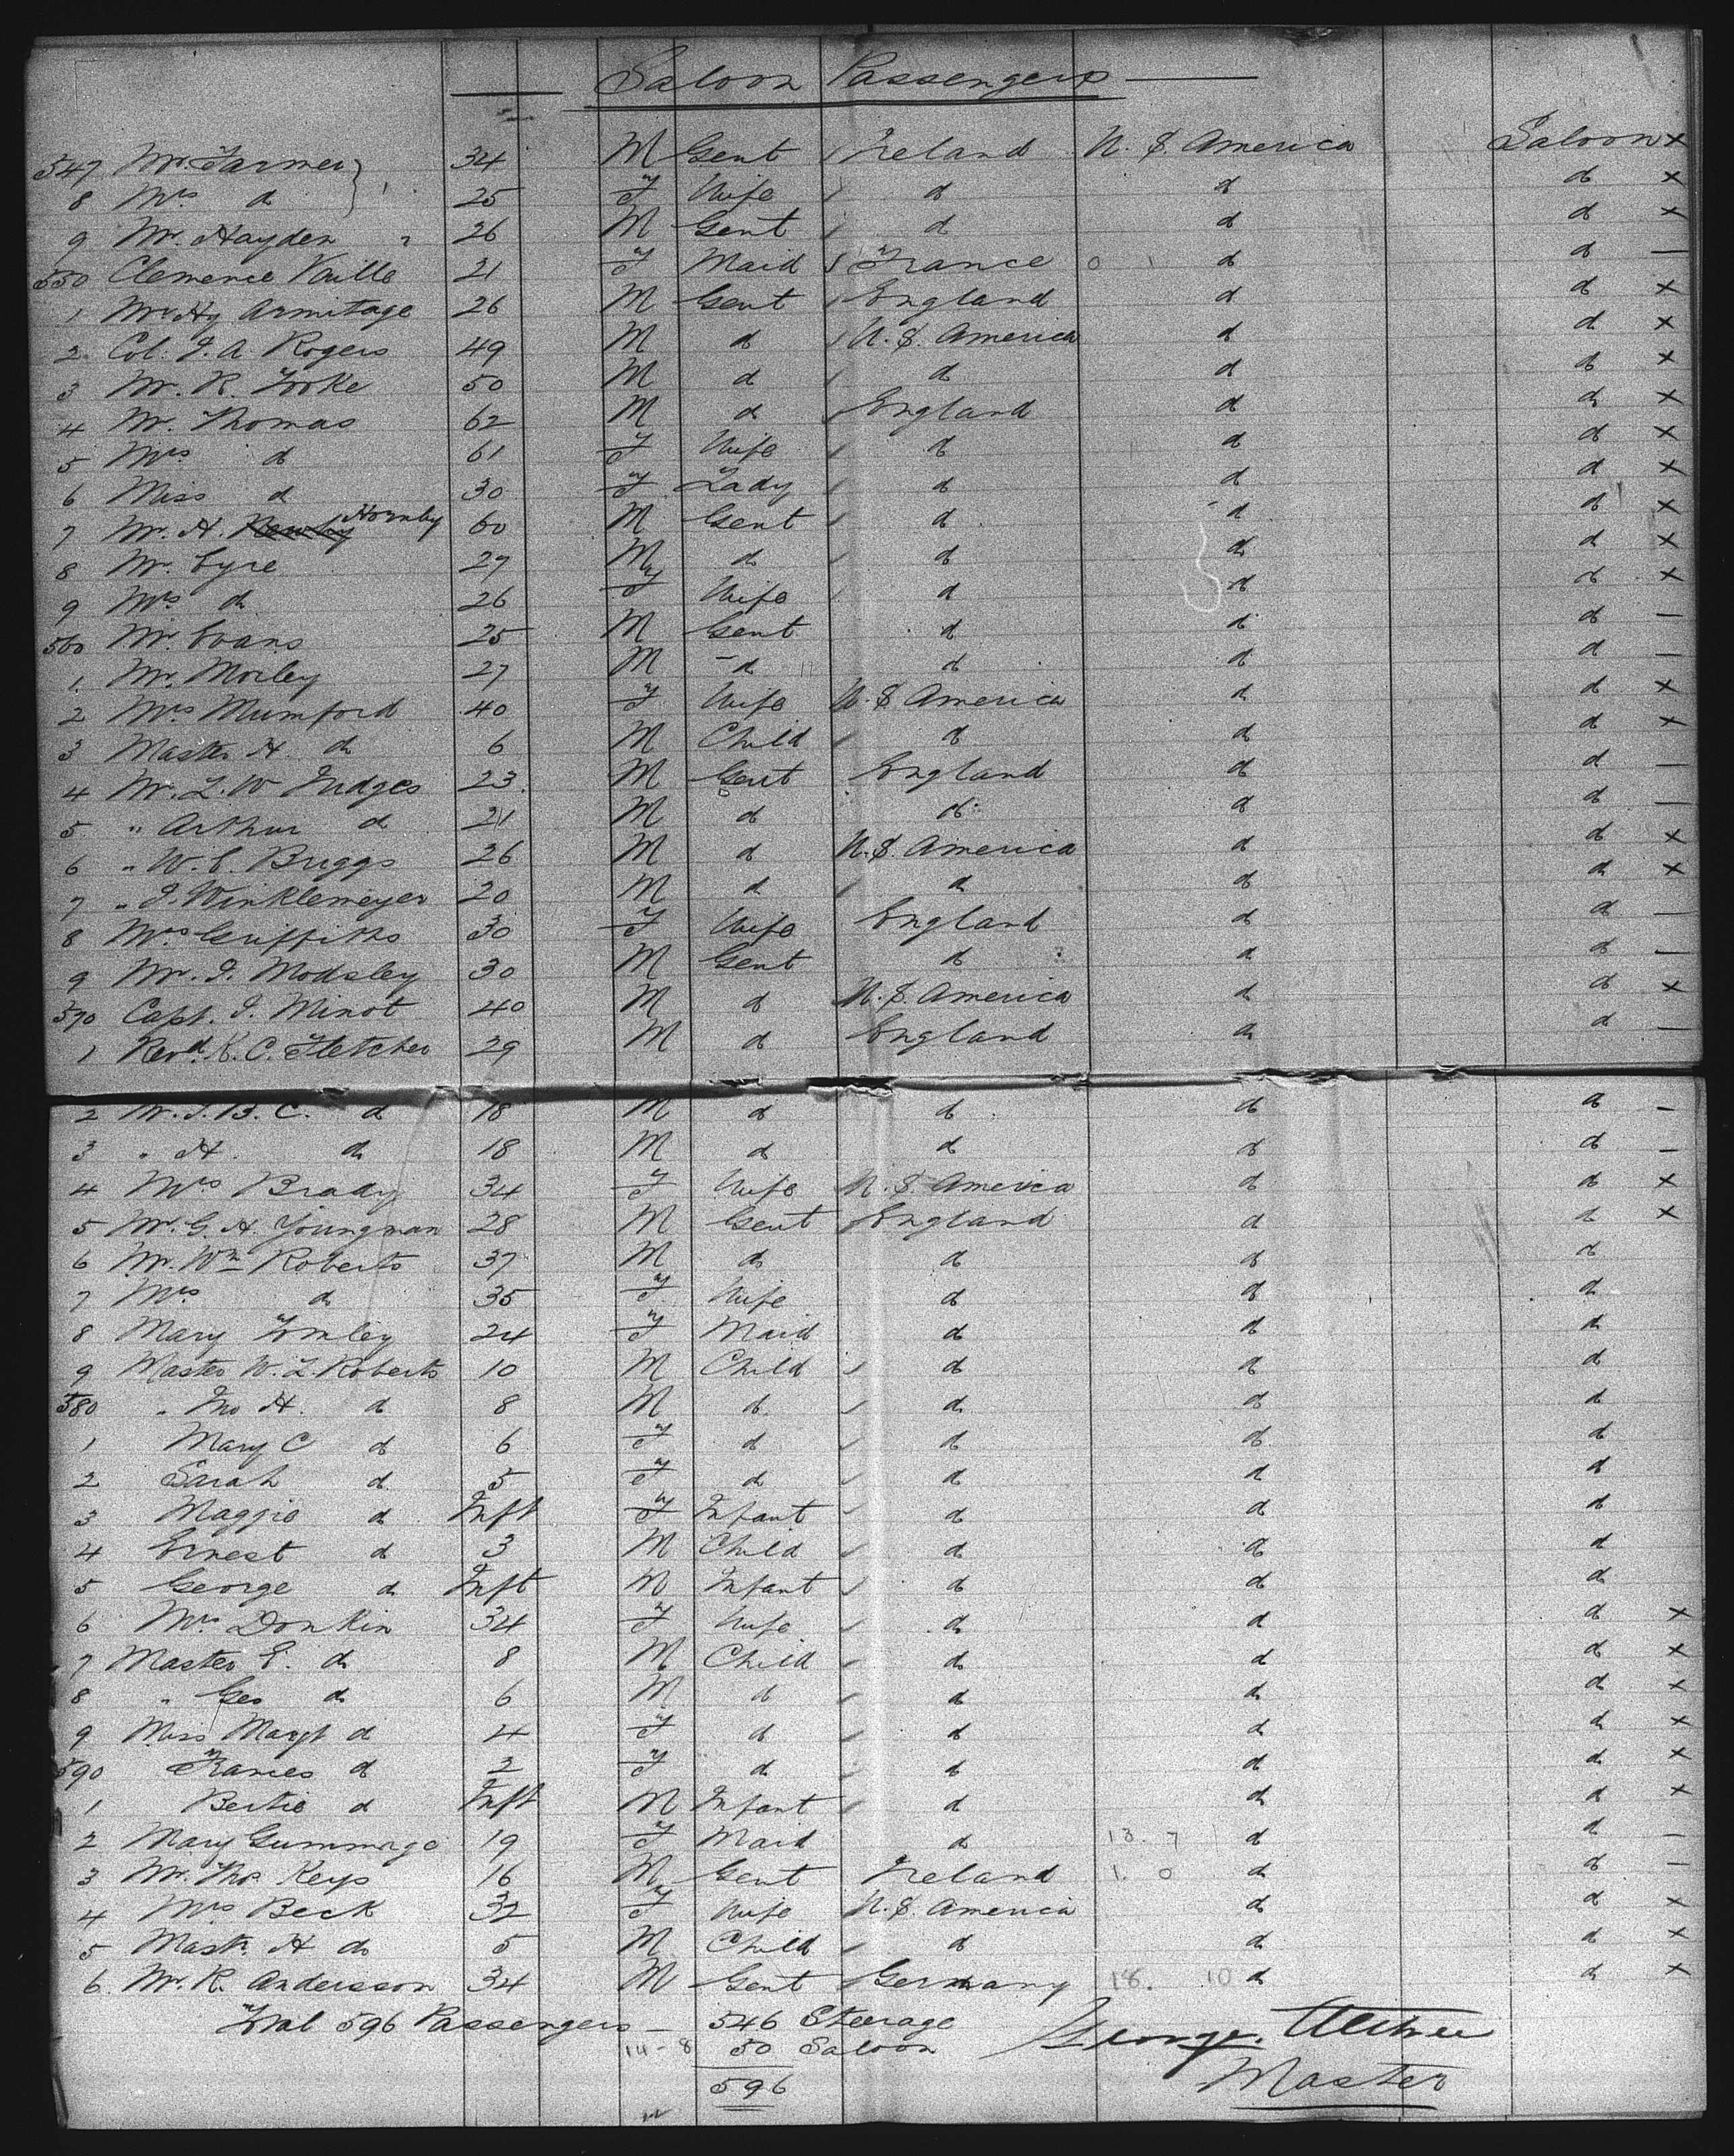 Saloon Passengers
547 Mr. Farmer 34 M Gent Ireland U. S. America Saloon x
8 Mrs do 25 F Wife do do do x
9 Mr. Hayden 26 M Gent do do do x
550 Clemence Vaille 21 F Maid France do do –
1 Mr Hy Armitage 26 M Gent England do do x
2 Col. J. A. Rogers 49 M do U. S. America do do x
3 Mr. R. Tooke 50 M do do do do x
4 Mr. Thomas 62 M do England do do x
5 Mrs do 61 F Wife do do do x
6 Miss do 30 F Lady do do do x
7 Mr. H. Hornby 60 M Gent do do do x
8 Mr. Eyre 27 M do do do do x
9 Mrs do 26 F Wife do do do x
560 Mr. Evans 25 M Gent do do do –
1 Mr. Morley 27 M do do do do –
2 Mrs Mumford 40 F Wife U. S. America do do x
3 Master H. do 6 M Child do do do x
4 Mr. L. W Judges 23 M Gent England do do –
5 " Arthur do 21 M do do do do –
6 " W. E. Briggs 26 M do U. S. America do do x
7 " J. Winklemeyer 20 M do do do do x
8 Mrs Griffiths 30 F Wife England do do –
9 Mr. J. Modsley 30 M Gent do do do –
570 Capt. J. Minot 40 M do U. S. America do do x
1 Revd. R. C. Fletcher 29 M do England do do –
2 Mr. J. B. C. do 18 M do do do do –
3 " H. do 18 M do do do do –
4 Mrs Brady 34 F Wife U. S. America do do x
5 Mr. G. H. Youngman 28 M Gent England do do x
6 Mr. Wm Roberts 37 M do do do do
7 Mrs do 35 F Wife do do do
8 Mary 24 F Maid do do do
9 Master W. L. Roberts 10 M Child do do do
580 " Jno H. do 8 M do do do do
1 Mary C do 6 F do do do do
2 Sarah do 5 F do do do do
3 Maggie do Inft F Infant do do do
4 Ernest do 3 M Child do do do
5 George do Inft M Infant do do do
6 Mrs Donkin 34 F Wife do do do x
7 Master E. do 8 M Child do do do x
8 " Geo do 6 M do do do do x
9 Miss Margt do 4 F do do do do x
590 Frances do 2 F do do do do x
1 Bertie do Inft M Infant do do do x
2 Mary Gummage 19 F Maid do 13. 7 do do –
3 Mr. Thos. Keys 16 M Gent Ireland 1. 0 do do –
4 Mrs Beck 32 F Wife U. S. America do do x
5 Mastr. H do 5 M Child do do do x
6 Mr. R. Andersson 34 M Gent Germany 18. 10 do do x
Total 596 Passengers – 546 Steerage
14-8 50 Saloon George
596 Master